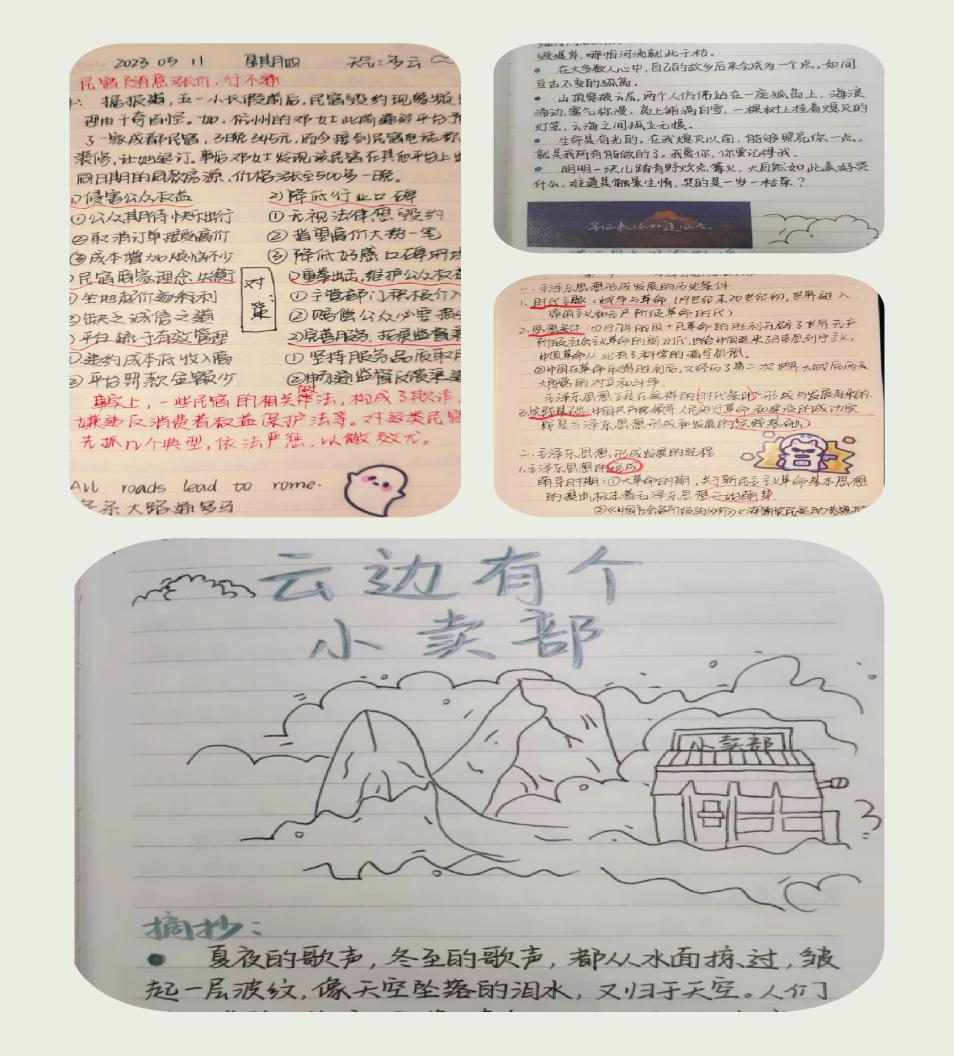 2023 05 11 星期四 天气:多云
民宿随意涨价,行不通
据报道,五一小长假前后,民宿毁约现象频
理由千奇百怪。如,杭州的邓女士此前通过平台预
了一家成都民宿,3晚545元,而今接到民宿电话称
装修,让她退订。事后邓女士发现该民宿在其他平台上
同日期的同款房源,价格涨至500多一晚。
侵害公众权益
2)降低行业口碑
①公众期待快乐出行
①无视法律想毁约
②取消订单接受高价
②指望高价大赚一笔
③成本增加烦恼不少
③降低好感口碑
民宿商家理念失衡
重拳出击,维护公众权益
坐地起价多牟利
对:策
①主管部门积极介入
缺乏诚信之道
②赔偿公众必需
平台疏于有效管理
2)完善服务,拓展监督渠
违约成本低收入高
①坚持服务品质
平台罚款金额少
②申通监督反馈渠道
事实上,一些民宿的相关做法,构成了欺诈,
嫌违反消费者权益保护法等。对这类民宿
先抓几个典型,依法严惩,以儆效尤。
All roads lead to rome.
条条大路通罗马
毁堤岸,哪怕河流就此干枯。
在大多数人心中,自己的故乡后来会成为一个点,如同
亘古不变的孤岛。
山顶穿破云层,两个人仿佛站在一座孤岛上,海浪
涌动,雾气弥漫,岛上铺满白雪,一棵树上挂着熄灭的
灯笼,云海之间孤立无援。
生命是有光的。在我熄灭以前,能够照亮你一点,
就是我所有能做的了。我爱你,你要记得我。
明明一块儿踏青野炊点篝火,大自然如此美好哭
什么,难道是触景生情,哭的是一岁一枯荣?
一、毛泽东思想形成发展的历史条件
1.时代主题:战争与革命(19世纪末20世纪初,世界进入
帝国主义和无产阶级革命的时代)
2.思想条件:①1917年俄国十月革命的胜利开辟了世界无产
阶级社会主义革命的新时代,也给中国送来马克思列宁主义,
中国革命从此有了科学的指导思想。
②中国革命取得胜利后,又经历了第二次世界大战后两大
大阵营的对立和斗争。
毛泽东思想正是在这样的时代条件下形成和发展起来的。
3.实践基础:中国共产党领导人民进行革命和建设的成功实
践是毛泽东思想形成和发展的实践基础
二、毛泽东思想形成发展的过程
1.毛泽东思想的形成
萌芽时期:①大革命时期,关于新民主主义革命基本思想
的提出标志着毛泽东思想开始萌芽.
②《中国社会各阶级的分析》《湖南农民运动考察报
云边有个
小卖部
小卖部
摘抄:
夏夜的歌声,冬至的歌声,都从水面掠过,皱
起一层波纹,像天空坠落的泪水,又归于天空。人们